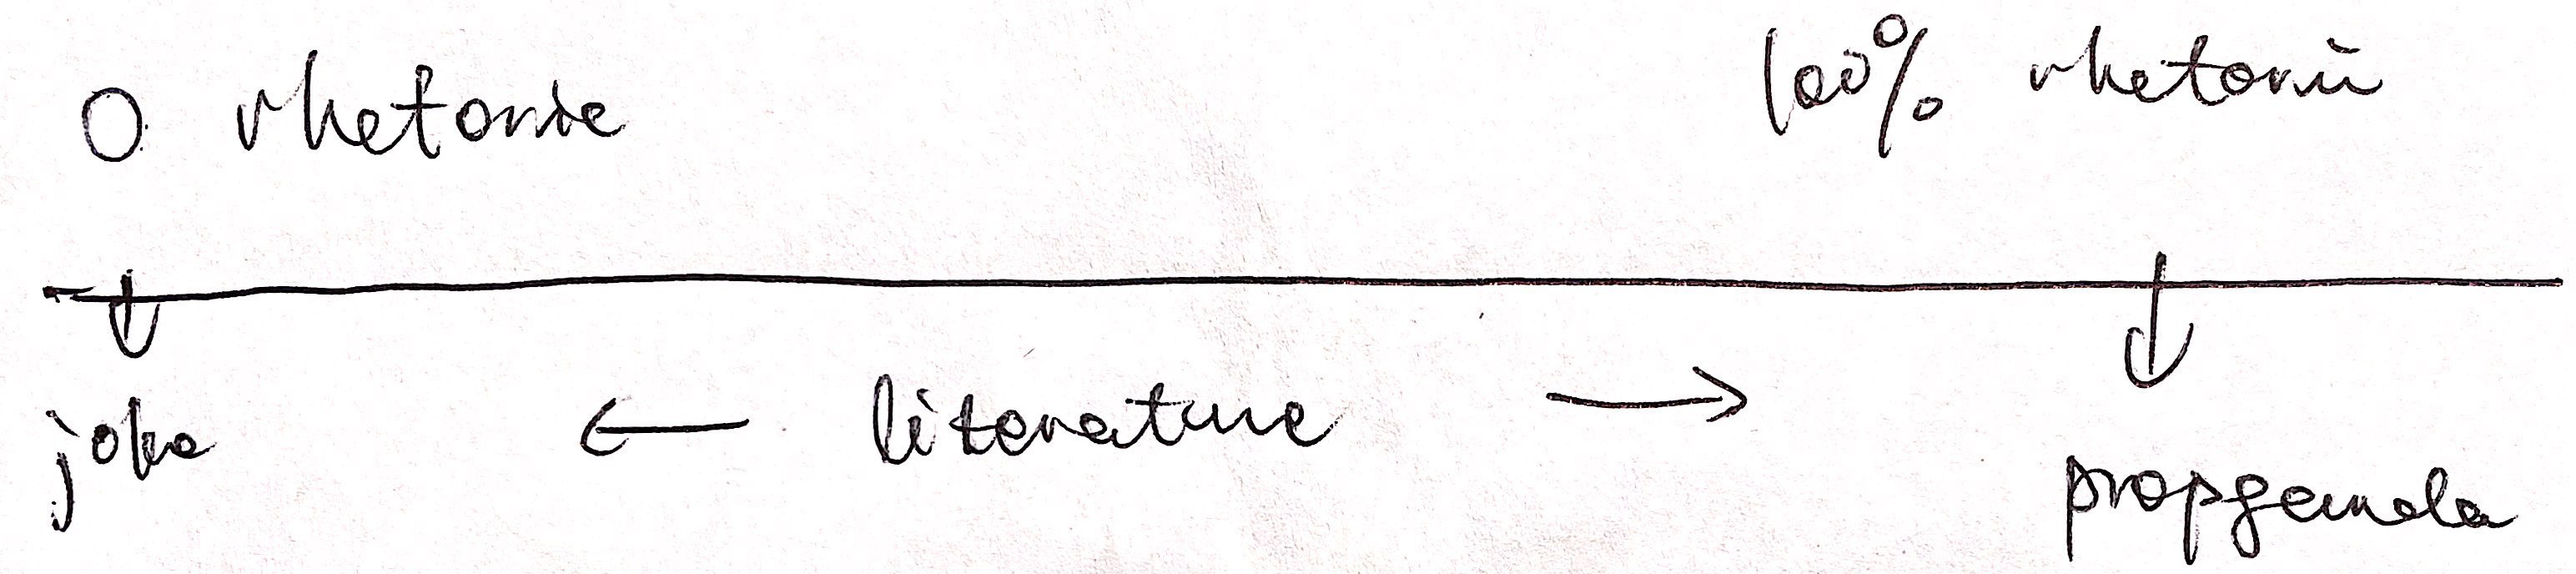 0 rhetoric 100% rhetoric
joke ← literature → propgemda